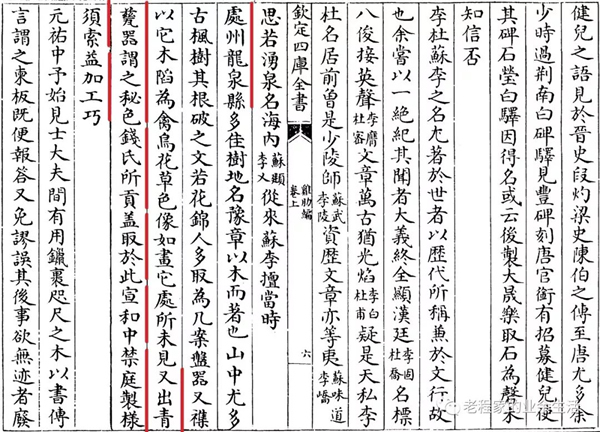 健兒之語見於晉史段灼梁史陳伯之傳至唐尤多余
少時過荆南白碑驛見豐碑刻唐官銜有招募健兒使
其碑石瑩白驛因得名或云後製大晟樂取石為磬未
知信否
李杜蘇李之名尤著於世者以歷代所稱兼於文行故
也余嘗以一絕紀其聞者大義終全顯漢廷李固杜喬名標
八俊接英聲李膺杜密文章萬古猶光焰李白杜甫疑是天私李
杜名居前曽是少陵師蘇武李陵資歷文章亦等夷蘇味道李嶠
欽定四庫全書
雞肋編
卷上
六
思若湧泉名海内蘇頲李乂從來蘇李擅當時
處州龍泉縣多佳樹地名豫章以木而著也山中尤多
古楓樹其根破之文若花錦人多取為几案盤器又襍
以它木陷為禽鳥花草色像如畫它處所未見又出青
甆器謂之秘色錢氏所貢盖取於此宣和中禁庭製様
須索益加工巧
元祐中予始見士大夫間有用鑞裹咫尺之木以書傳
言謂之柬板既便報答又免謬誤其後事欲無迹者廢
老程家的业余生活